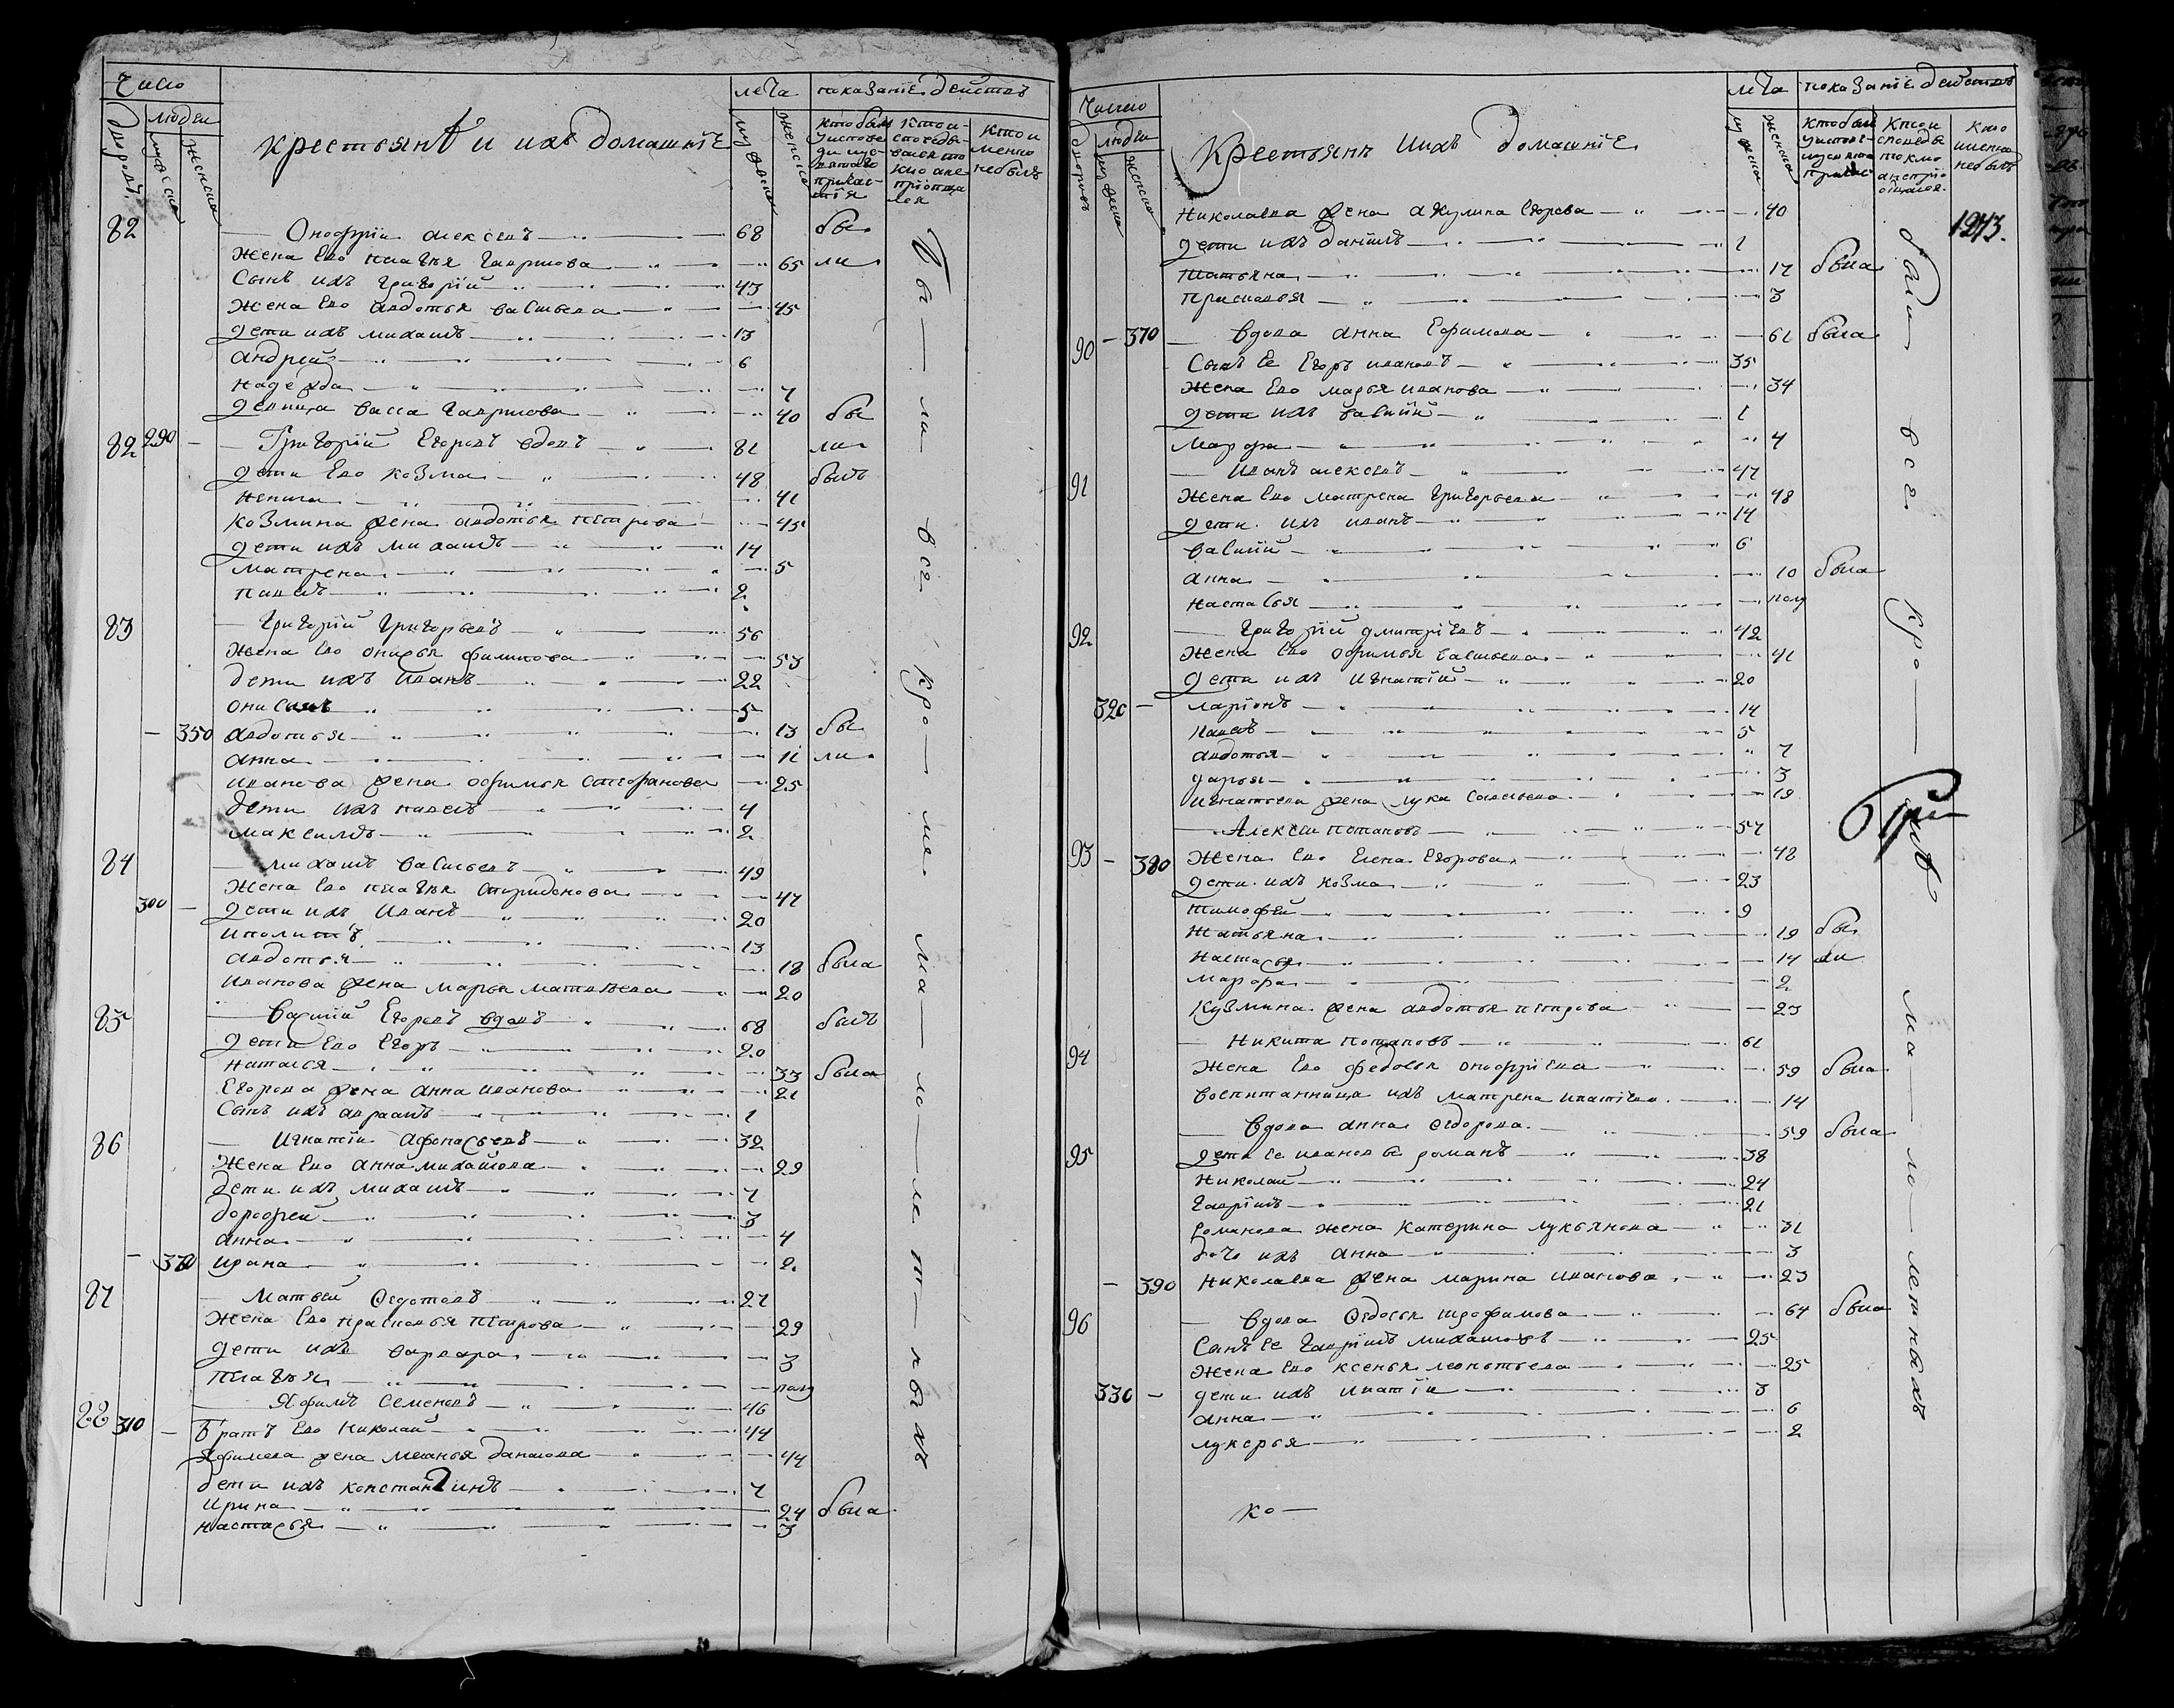 Число
людей
дворовъ
мужеска
женска
крестьянъ и ихъ домашніе
лета
мужеска
женска
показаніе действъ
кто былъ у исповеди и у святаго причастія
кто исповедывался токмо а не приобщался
кто и менно небылъ
82 Онофрій алексеевъ 68 бы
Жена Ево пелагѣя Гаврилова 65 ли
Сынъ ихъ григорій 43
Жена Ево авдотья васильева 45
дети ихъ михаилъ 13
андрей 6
надежда 7
девица васса Гаврилова 40 бы
82 290 Григорій Егоровъ вдовъ 81 ли
дети Ево козма 48 былъ
41
козмина жена авдотья петрова 45
дети ихъ михаилъ 14
матрена 5
павелъ 2
83 Григорій Григорьевъ 56
Жена Ево онисья филипова 53
дети ихъ Иванъ 22
онисимъ 5
350 авдотья 13 бы
анна 11 ли
иванова жена офимья стефанова 25
дети ихъ павелъ 4
максимъ 2
84 михаилъ васильевъ 49
Жена Ево пелагѣя спиридонова 47
300 дети ихъ Иванъ 20
иполитъ 13
авдотья 18 была
иванова жена марья матвѣева 20
85 василій Егоровъ вдовъ 68 былъ
дети Ево Егоръ 20
наталья 33 была
Егорова жена анна иванова 21
Сынъ ихъ авраамъ 1
86 Игнатій афонасьевъ 32
Жена Ево анна михайлова 29
дети ихъ михаилъ 7
дорофей 3
анна 4
360 ирина 2
87 Матвей Федотовъ 27
Жена Ево прасковья петрова 29
дети ихъ варвара 3
пелагѣя полу
88 310 Яфимъ Семеновъ 46
братъ Ево николай 44
Яфимова жена меланья данилова 44
дети ихъ константинъ 7
ирина 24 была
настасья 3
бы—ли все кро—ме ма—ло—лет—ныхъ
Число
дворовъ
людей
мужеска
женска
Крестьянъ ихъ домашніе
лета
мужеска
женска
показаніе действъ
Кто был у исповеди и у святаго причас
Кто исповеде токмо а не приобщался
Кто именно небылъ
1243.
Николаева жена акулина Егорова 40
дети ихъ данилъ 1
татьяна 17 была
прасковья 3
90 370 Вдова анна Ефимова 61 была
Сынъ Ее Егоръ ивановъ 35
Жена Ево марья иванова 34
дети ихъ василий 1
марфа 4
91 Иванъ алексеевъ 47
Жена Ево матрена григорьева 48
дети ихъ иванъ 14
василий 6
анна 10 была
настасья полу
92 Григорий дмитріевъ 42
Жена Ево офимья васильева 41
дети ихъ игнатій 20
320 ларіонъ 14
павелъ 5
авдотья 7
дарья 3
игнатьева жена лукерья савельева 19
Алексей потаповъ 57
93 380 Жена Ево Елена Егорова 48
дети ихъ козма 23
тимофей 9
татьяна 19 бы
настасья 14 ли
марфа 2
кузмина жена авдотья петрова 23
94 Никита потаповъ 61
Жена Ево федосья онофріева 59 была
воспитанница ихъ матрена ипатіева 14
Вдова анна Федорова 59 была
95 дети Ее ивановы романъ 38
Николай 24
Гаврилъ 21
романова жена катерина лукьянова 31
дочь ихъ анна 3
390 николаева жена марина иванова 23
96 Вдова Федосья трофимова 64 была
Сынъ Ее Гаврилъ михайловъ 25
Жена Ево ксенья леонтьева 25
330 дети ихъ ипатій 3
анна 6
лукерья 2
ко—
были все кро—ме ма—ло—летныхъ